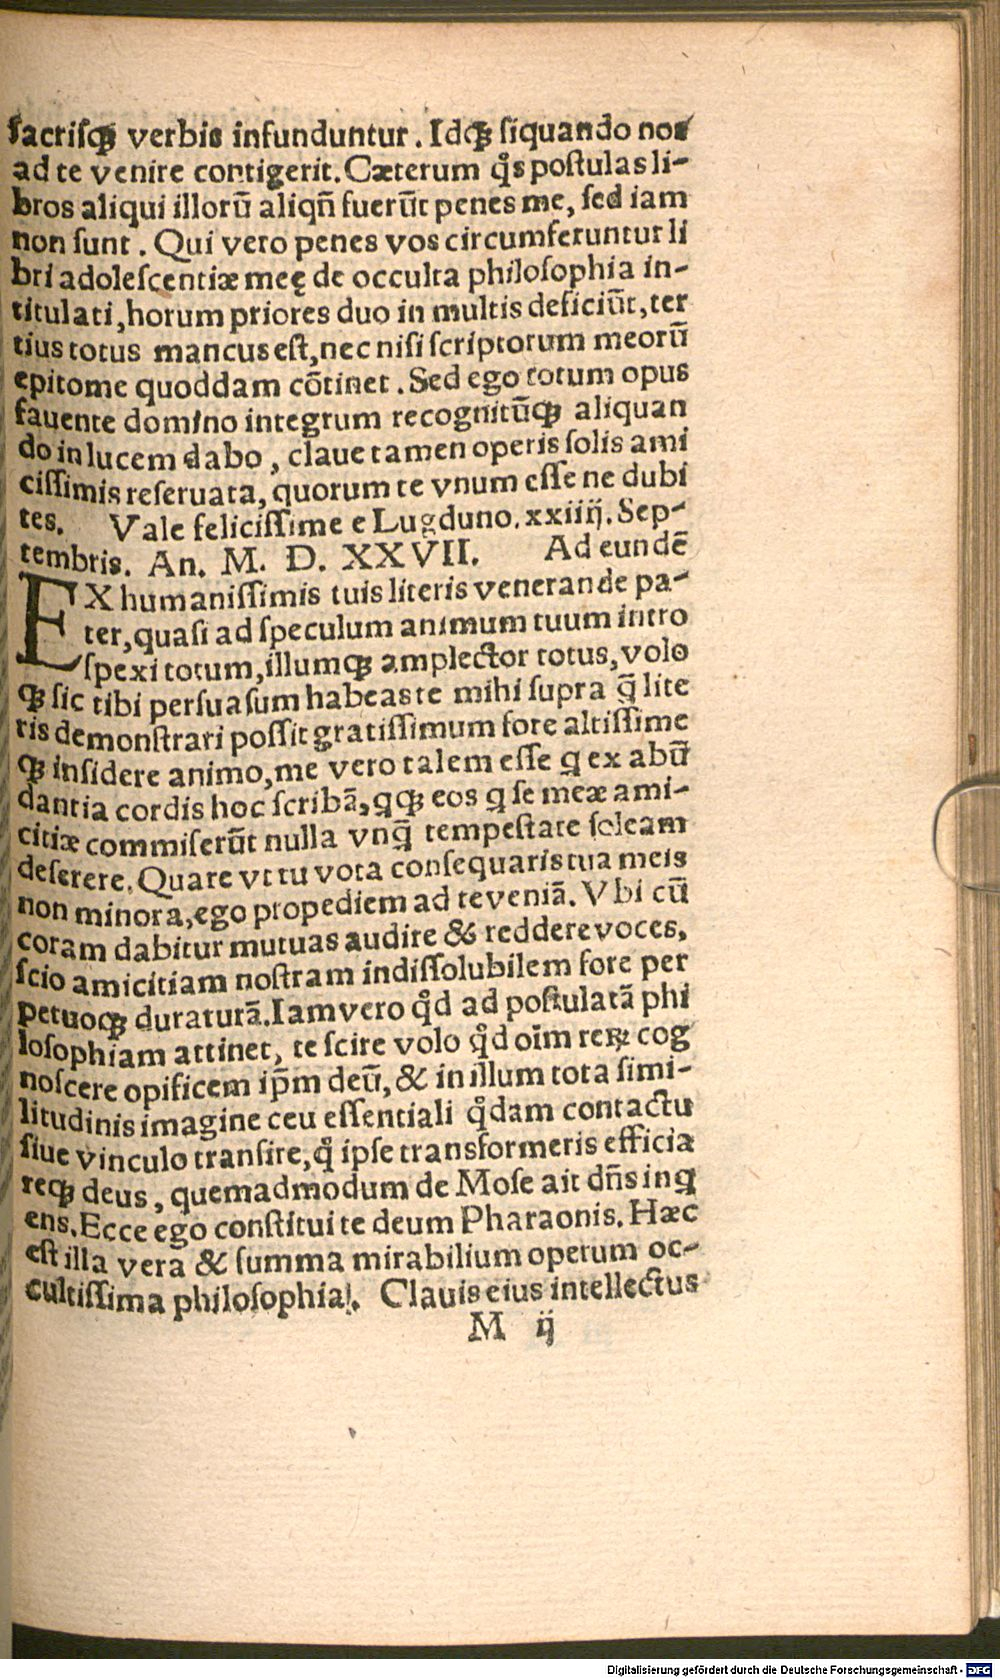 sacrisqꝫ verbis infunduntur. Idqꝫ siquando nos
ad te venire contigerit. Cæterum q̊s postulas li-
bros aliqui illorū aliqñ fuerūt penes me, sed iam
non sunt. Qui vero penes vos circumferuntur li
bri adolescentiæ meę de occulta philosophia in-
titulati, horum priores duo in multis deficiūt, ter
tius totus mancus est, nec nisi scriptorum meorū
epitome quoddam cōtinet. Sed ego totum opus
fauente domino integrum recognitūqꝫ aliquan
do in lucem dabo, claue tamen operis solis ami
cissimis reseruata, quorum te vnum esse ne dubi
tes. Vale felicissime e Lugduno. xxiiij. Sep-
tembris. An. M. D. XXVII. Ad eundē
EX humanissimis tuis literis venerande pa-
ter, quasi ad speculum animum tuum intro
spexi totum, illumqꝫ amplector totus, volo
qꝫ sic tibi persuasum habeas te mihi supra q̄ lite
ris demonstrari possit gratissimum fore altissime
qꝫ insidere animo, me vero talem esse q ex abū
dantia cordis hoc scribā, qqꝫ eos q se meæ ami-
citiæ commiserūt nulla vnq̄ tempestate soleam
deserere. Quare vt tu vota consequaris tua meis
non minora, ego propediem ad te veniā. Vbi cū
coram dabitur mutuas audire & reddere voces,
scio amicitiam nostram indissolubilem fore per
petuoqꝫ duraturā. Iam vero q̊d ad postulatā phi
losophiam attinet, te scire volo q̊d oīm reꝝ cog
noscere opificem ip̄m deū, & in illum tota simi-
litudinis imagine ceu essentiali q̊dam contactu
siue vinculo transire, q̊ ipse transformeris efficia
reqꝫ deus, quemadmodum de Mose ait dñs inq
ens. Ecce ego constitui te deum Pharaonis. Hæc
est illa vera & summa mirabilium operum oc-
cultissima philosophia. Clauis eius intellectus
M ij
Digitalisierung gefördert durch die Deutsche Forschungsgemeinschaft - DFG